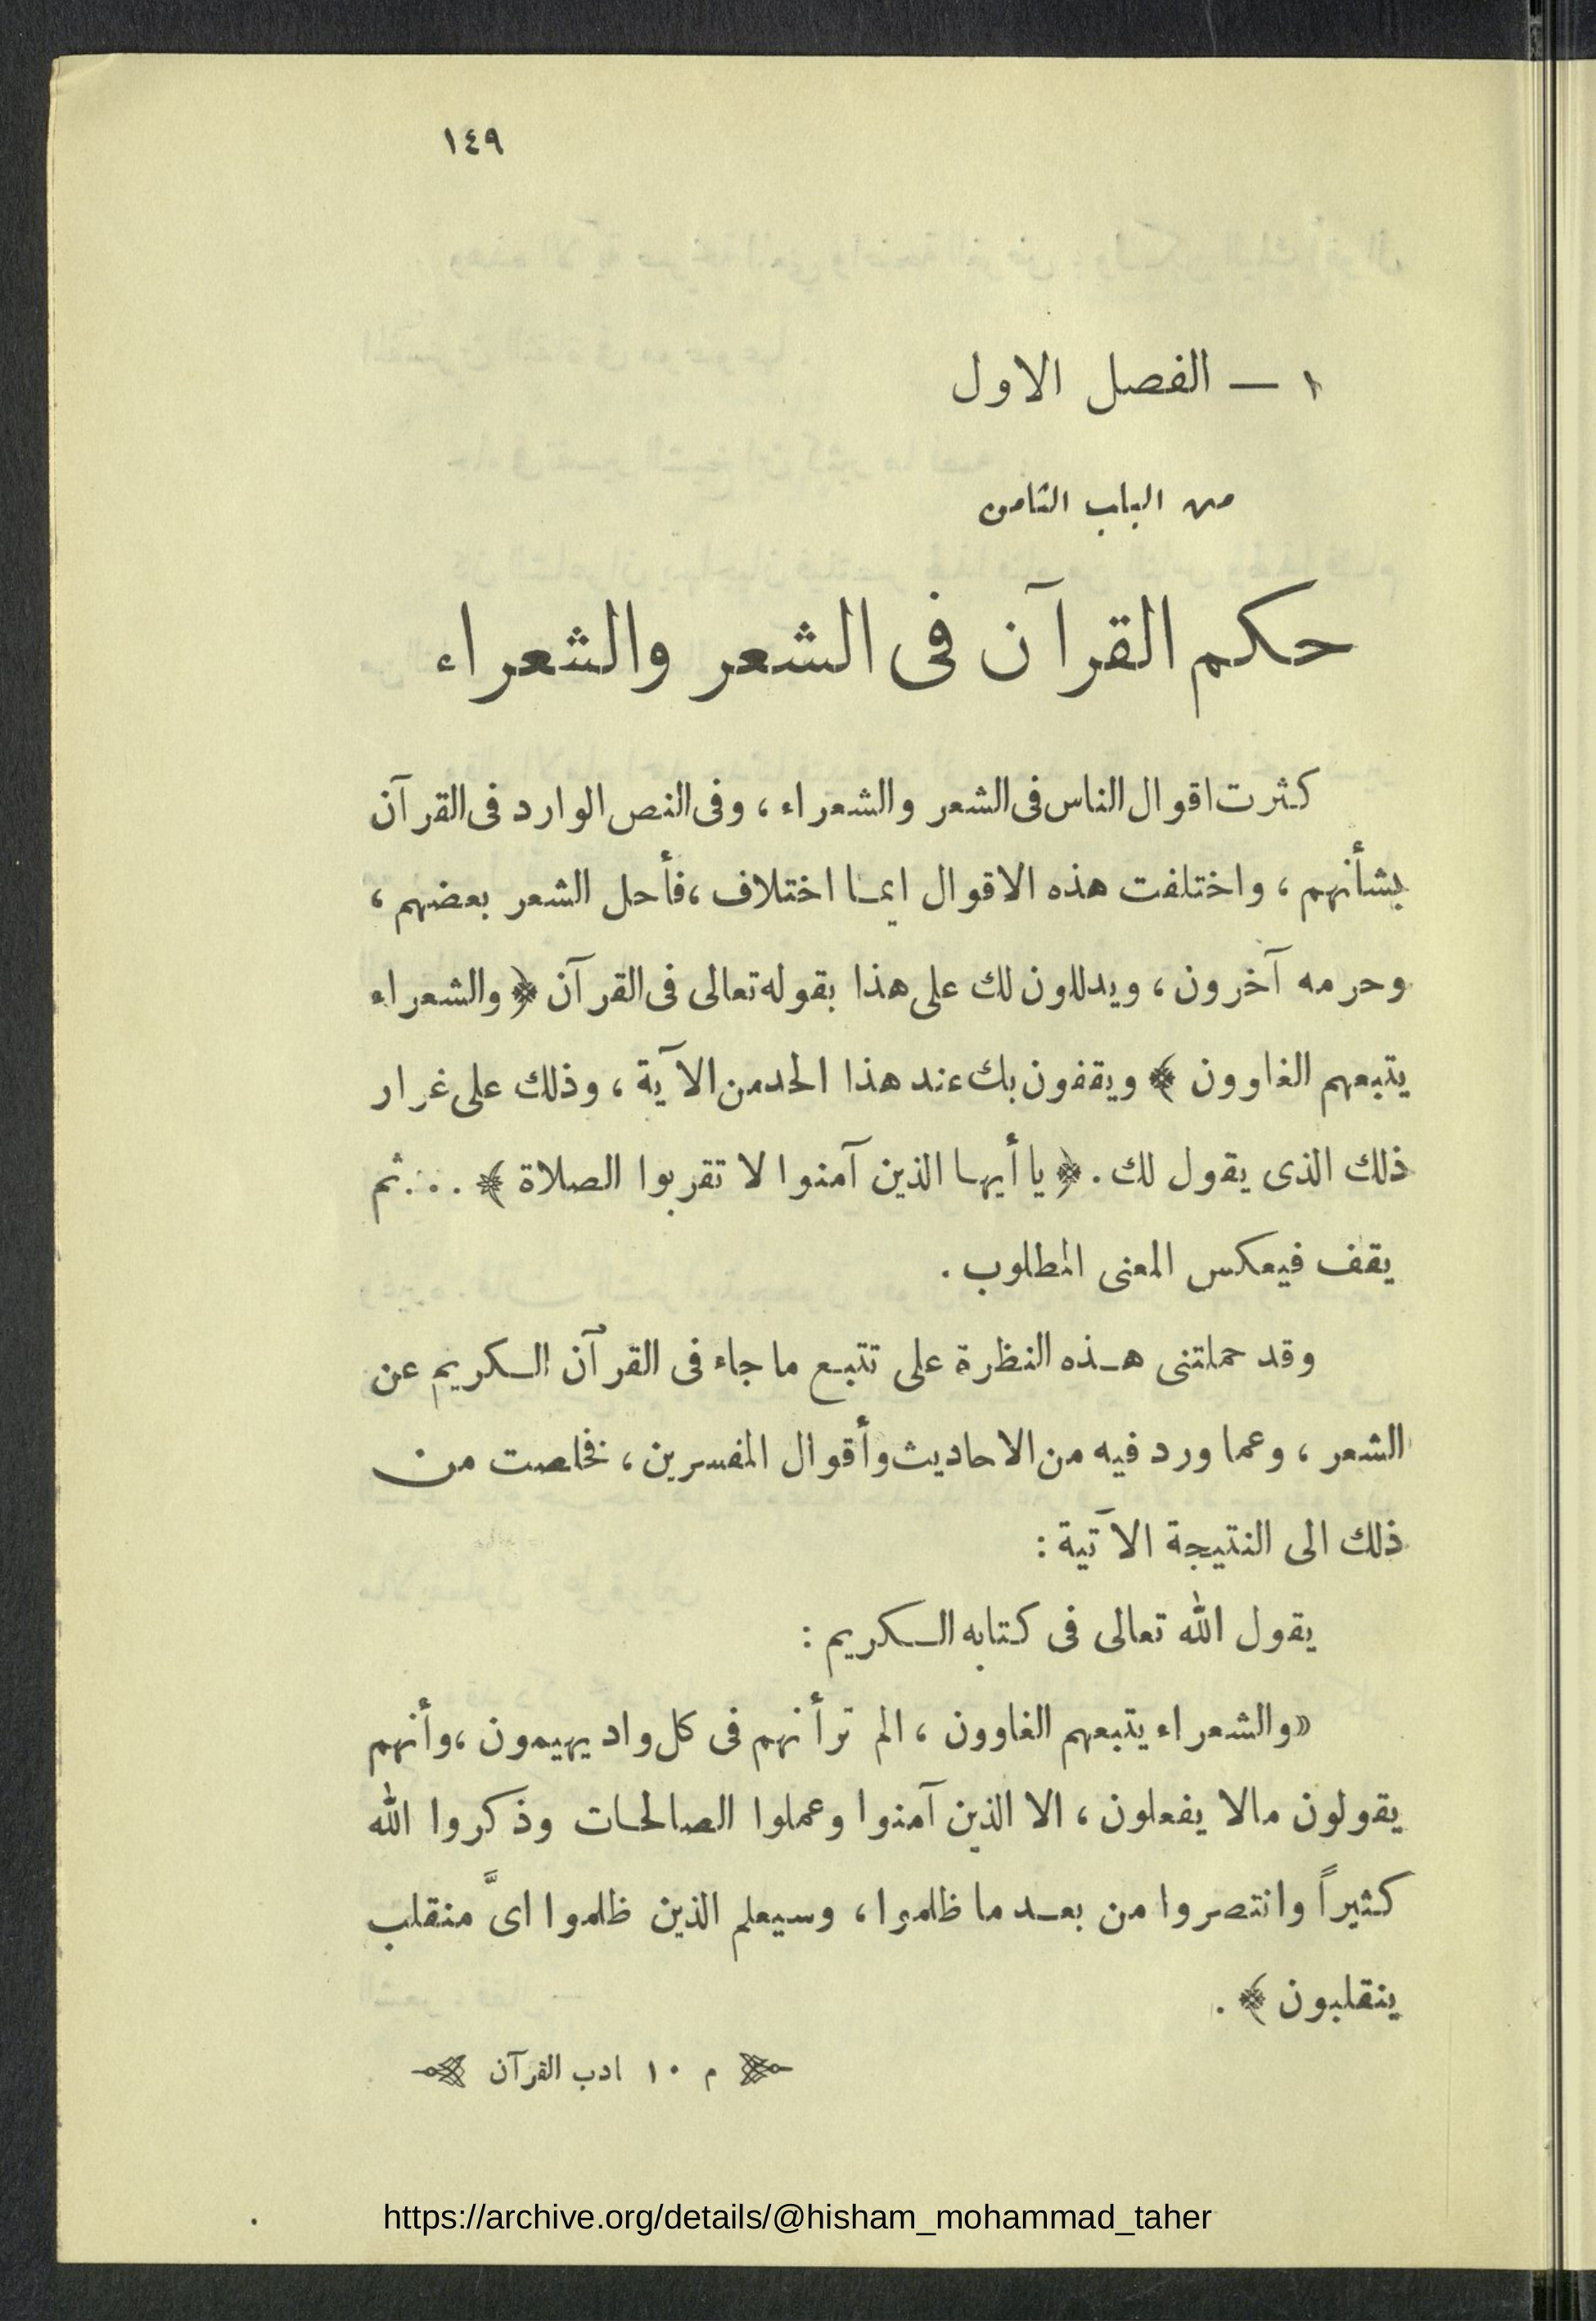 ١٤٩
١ — الفصل الاول
من الباب الثامن
حكم القرآن فى الشعر والشعراء
كثرت اقوال الناس فى الشعر والشعراء ، وفى النص الوارد فى القرآن
بشأنهم ، واختلفت هذه الاقوال ايمــا اختلاف ، فأحل الشعر بعضهم ،
وحرمه آخرون ، ويدللون لك على هذا بقوله تعالى فى القرآن ﴿ والشعراء
يتبعهم الغاوون ﴾ ويقفون بك عند هذا الحد من الآية ، وذلك على غرار
ذلك الذى يقول لك . ﴿ يا أيهـا الذين آمنوا لا تقربوا الصلاة ﴾ . . . . ثم
يقف فيعكس المعنى المطلوب .
وقد حملتنى هـذه النظرة على تتبـع ما جاء فى القرآن الـكريم عن
الشعر ، وعما ورد فيه من الاحاديث وأقوال المفسرين ، فخلصت من
ذلك الى النتيجة الآتية :
يقول الله تعالى فى كتابه الـكريم :
« والشعراء يتبعهم الغاوون ، الم تر أنهم فى كل واد يهيمون ، وأنهم
يقولون مالا يفعلون ، الا الذين آمنوا وعملوا الصالحـات وذكروا الله
كثيراً وانتصروا من بعـد ما ظلموا ، وسيعلم الذين ظلموا اىَّ منقلب
ينقلبون ﴾ .
م ١٠ ادب القرآن
https://archive.org/details/@hisham_mohammad_taher